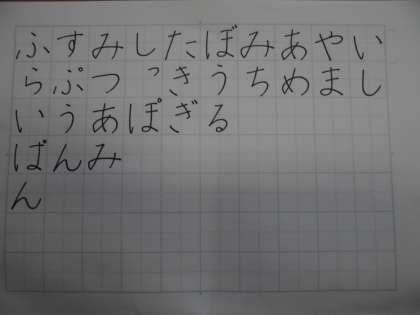 ふすみしたぼみあやい
らぷつっきうちめまし
いうあぽぎる
ばんみ
ん